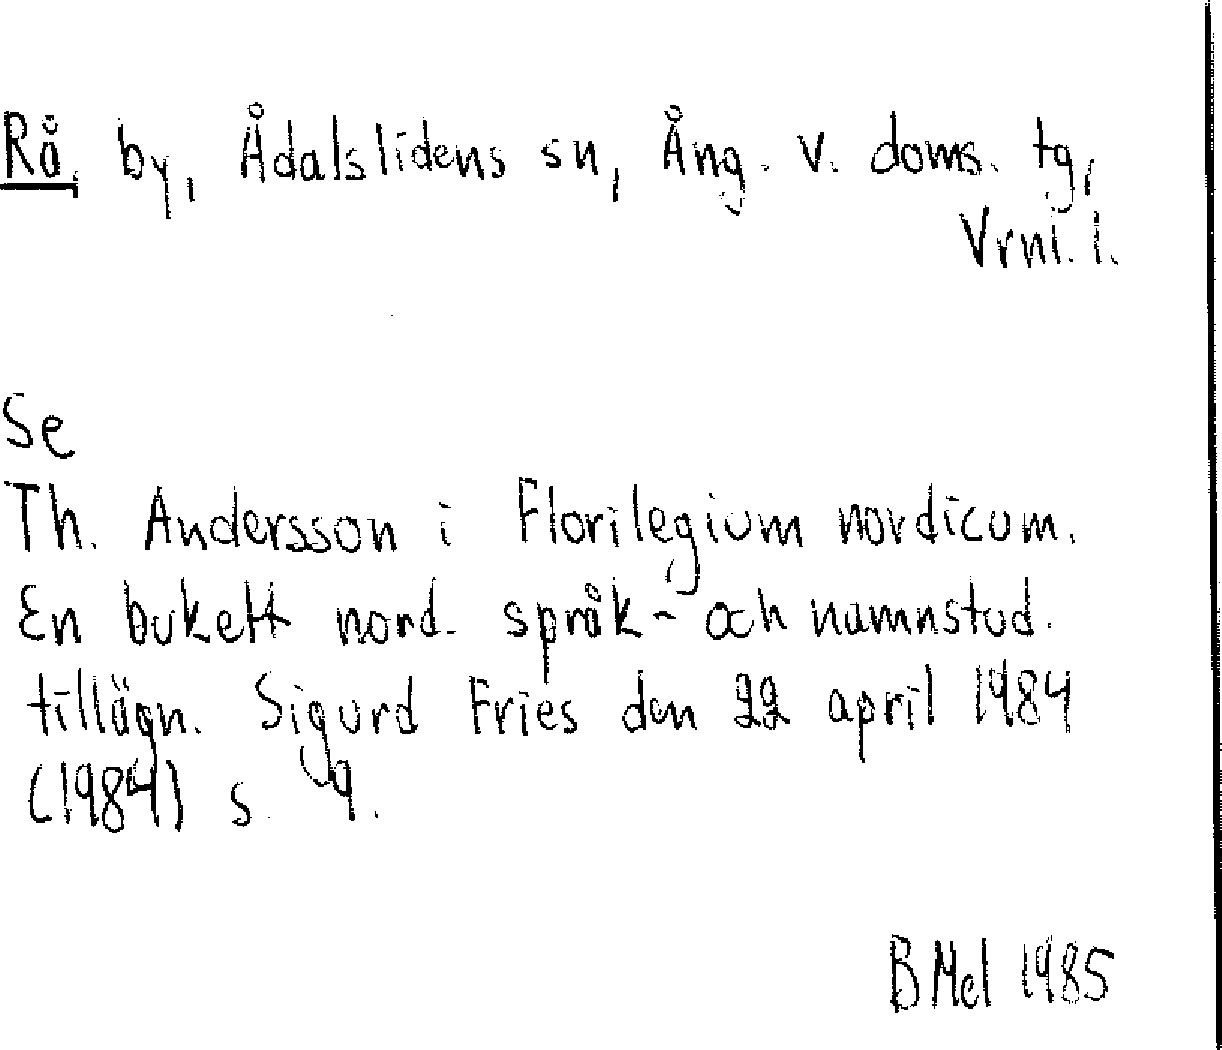 Rå, by, Ådalslidens sn, Ång. v. doms. tg,
Vrnl. l.
Se
Th. Andersson i Florilegium nordicum.
En bukett nord. språk- och namnstud.
tillägn. Sigurd Fries den 22 april 1984
(1984) s. 9.
B Mel 1985